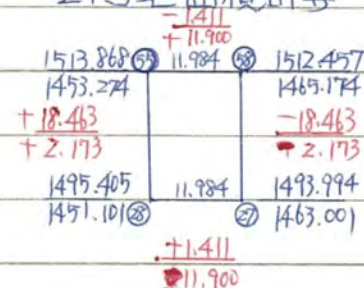 -1.411
+11.900
1513.868 55 11.984 58 1512.457
1453.274 1465.174
+18.463 -18.463
+2.173 2.173
1495.405 11.984 1493.994
1451.101 28 27 1463.001
+1.411
11.900